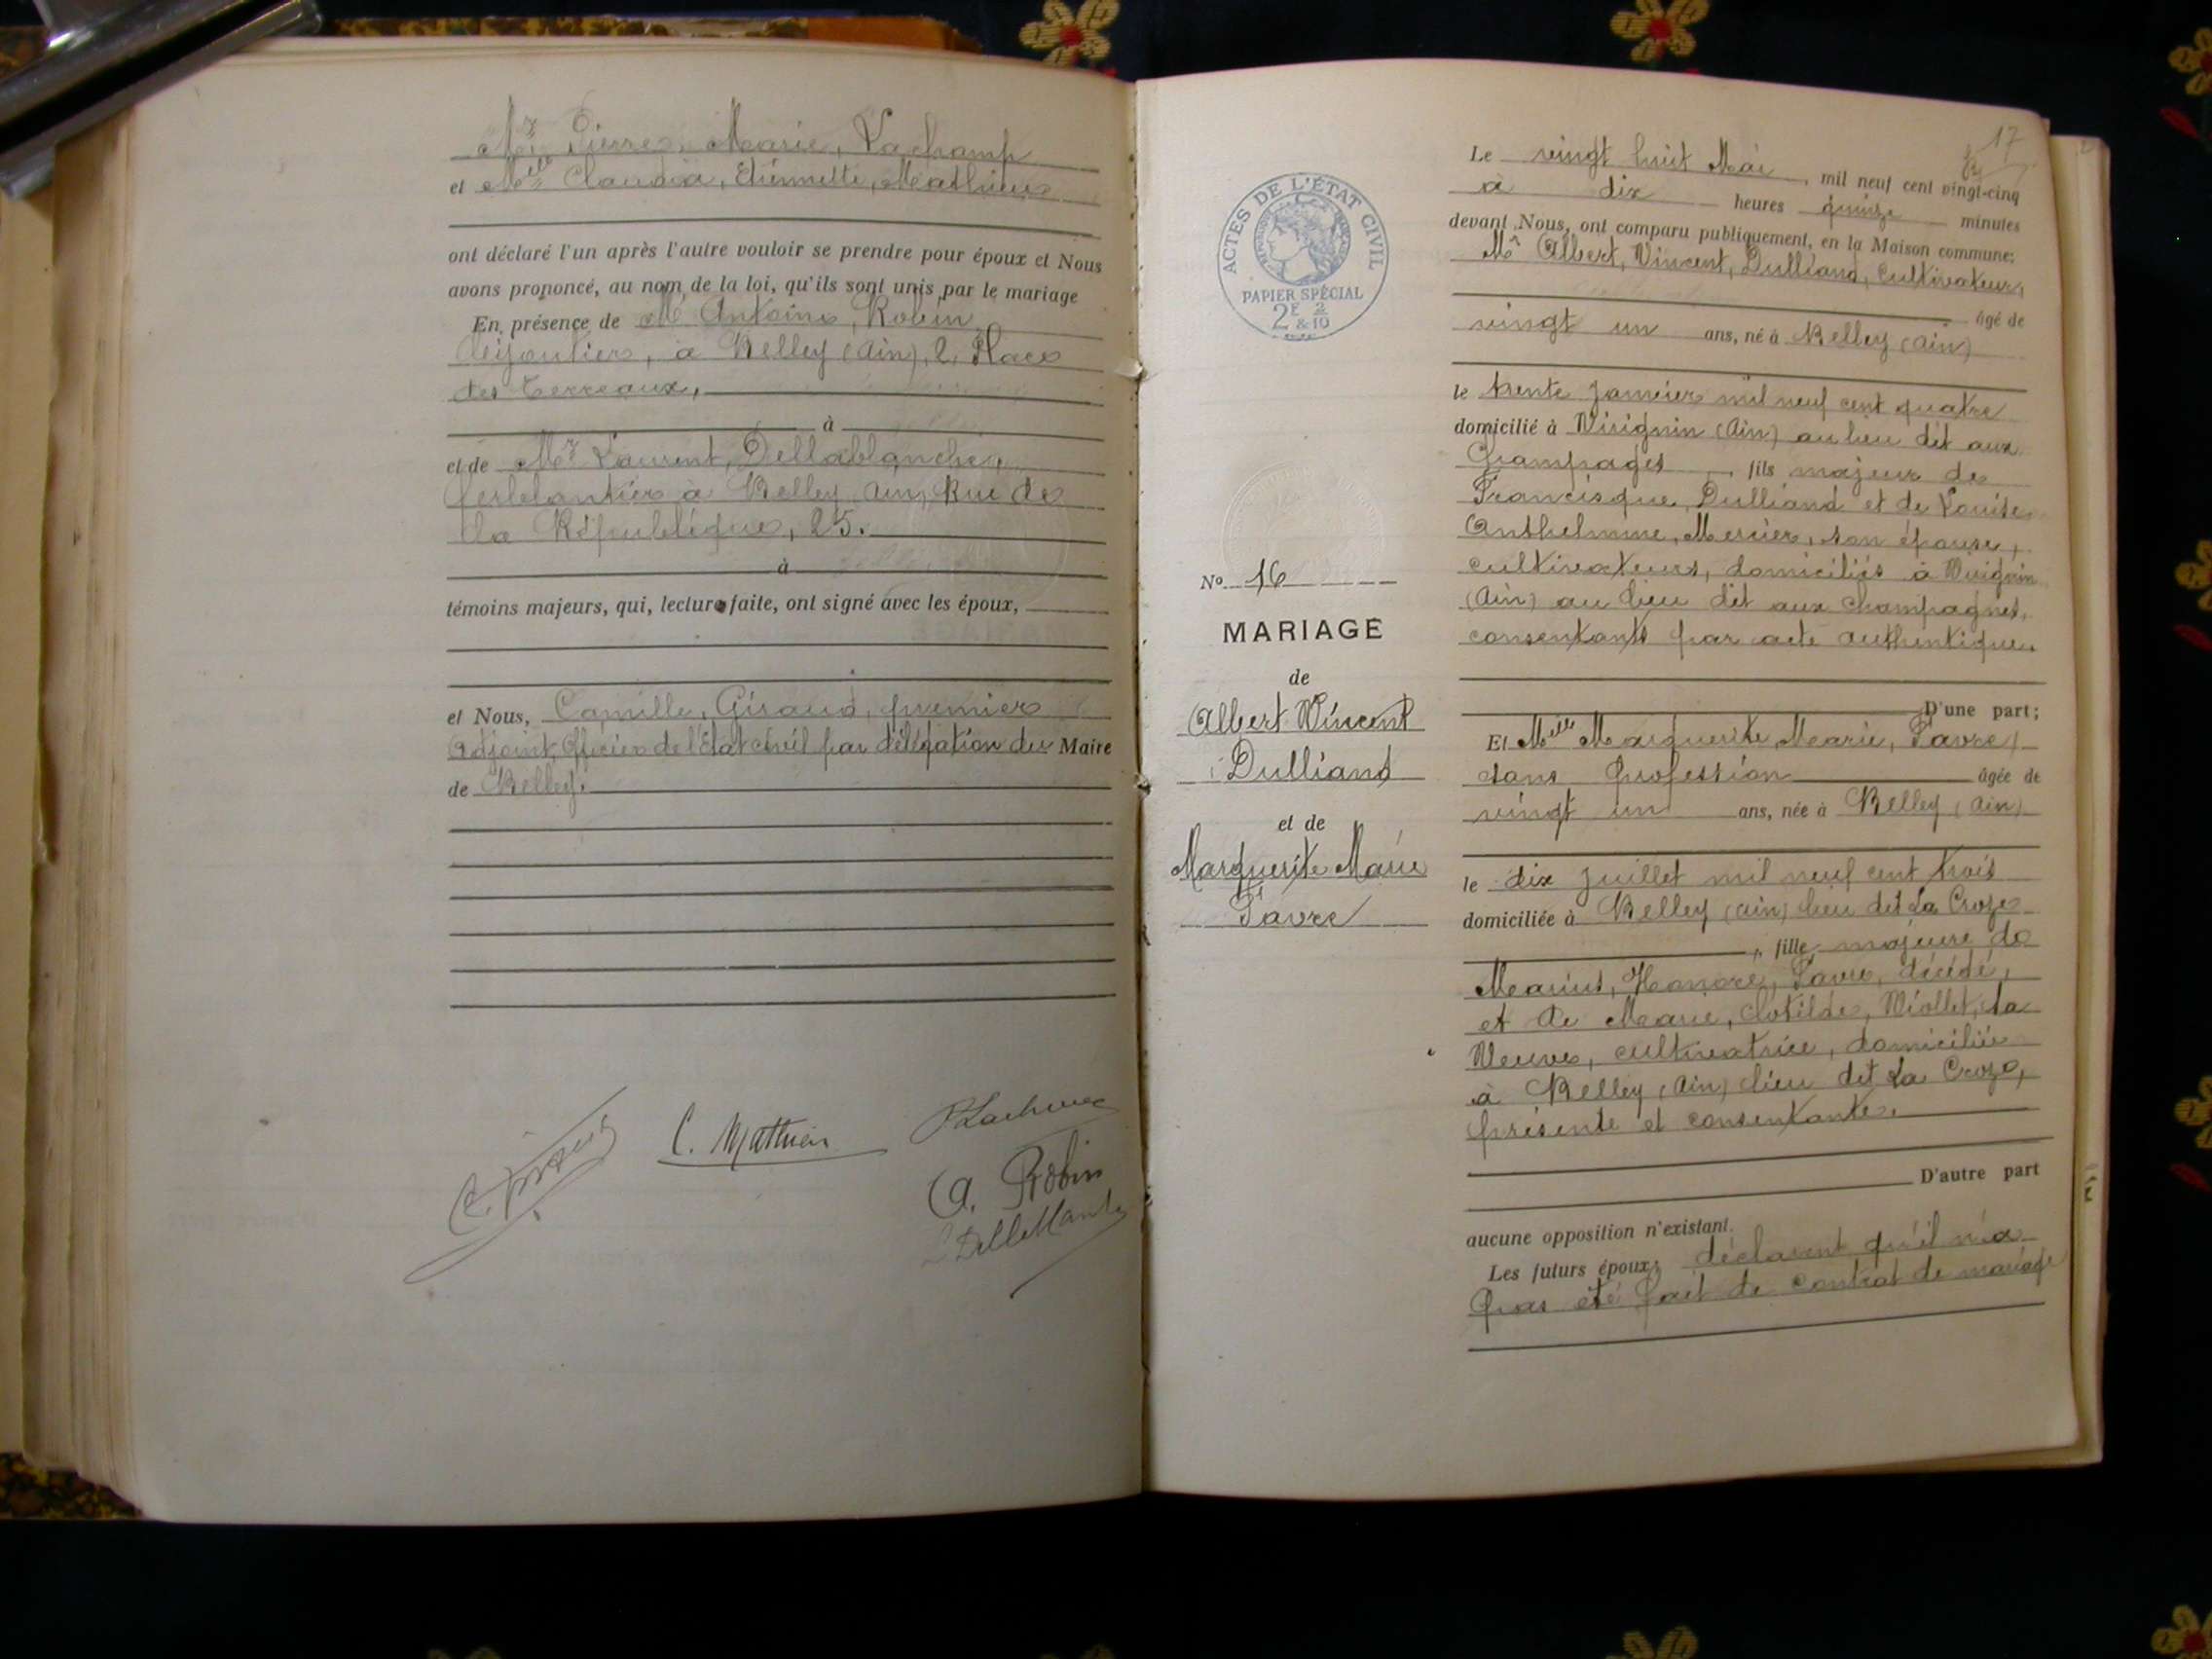 Mr Pierre, Marie, Vachamp
et Melle Claudia, Etiennette, Mathieu
ont déclaré l'un après l'autre vouloir se prendre pour époux et Nous
avons prononcé, au nom de la loi, qu'ils sont unis par le mariage
En présence de Mr Antoine, Robin
bijoutier, à Belley (Ain), 2, Place
des Terreaux,
à
et de Mr Laurent, Dellablanche,
ferblantier à Belley (Ain) Rue de
la République, 25.
à
témoins majeurs, qui, lecture faite, ont signé avec les époux,
et Nous, Camille, Giraud, premier
Adjoint, Officier de l'Etat civil par délégation du Maire
de Belley.
C. Mathieu
A. Robin
17
Le vingt huit Mai, mil neuf cent vingt-cinq
à dix heures quinze minutes
devant Nous, ont comparu publiquement, en la Maison commune:
Mr Albert, Vincent, Dulliand, Cultivateur,
âgé de
vingt un ans, né à Belley (Ain)
le trente janvier mil neuf cent quatre
domicilié à Virignin (Ain) au lieu dit aux
Champages, fils majeur de
Francisque, Dulliand et de Louise
Anthelmine, Mercier, son épouse,
cultivateurs, domiciliés à Virignin
(Ain) au lieu dit aux champagnes,
consentants par acte authentique.
D'une part;
Et Melle Marguerite, Marie, Favre,
sans profession âgée de
vingt un ans, née à Belley (Ain)
le dix juillet mil neuf cent trois
domiciliée à Belley (Ain) lieu dit La Croze
, fille majeure de
Marius, Honoré, Favre, décédé,
et de Marie, Clotilde, Viollet, sa
Veuve, cultivatrice, domiciliée
à Belley (Ain) lieu dit La Croze,
présente et consentante.
D'autre part
aucune opposition n'existant.
Les futurs époux déclarent qu'il n'a
pas été fait de contrat de mariage
ACTES DE L'ÉTAT CIVIL
PAPIER SPÉCIAL
2E & 2/10
No 16
MARIAGE
de
Albert Vincent
Dulliand
et de
Marguerite Marie
Favre